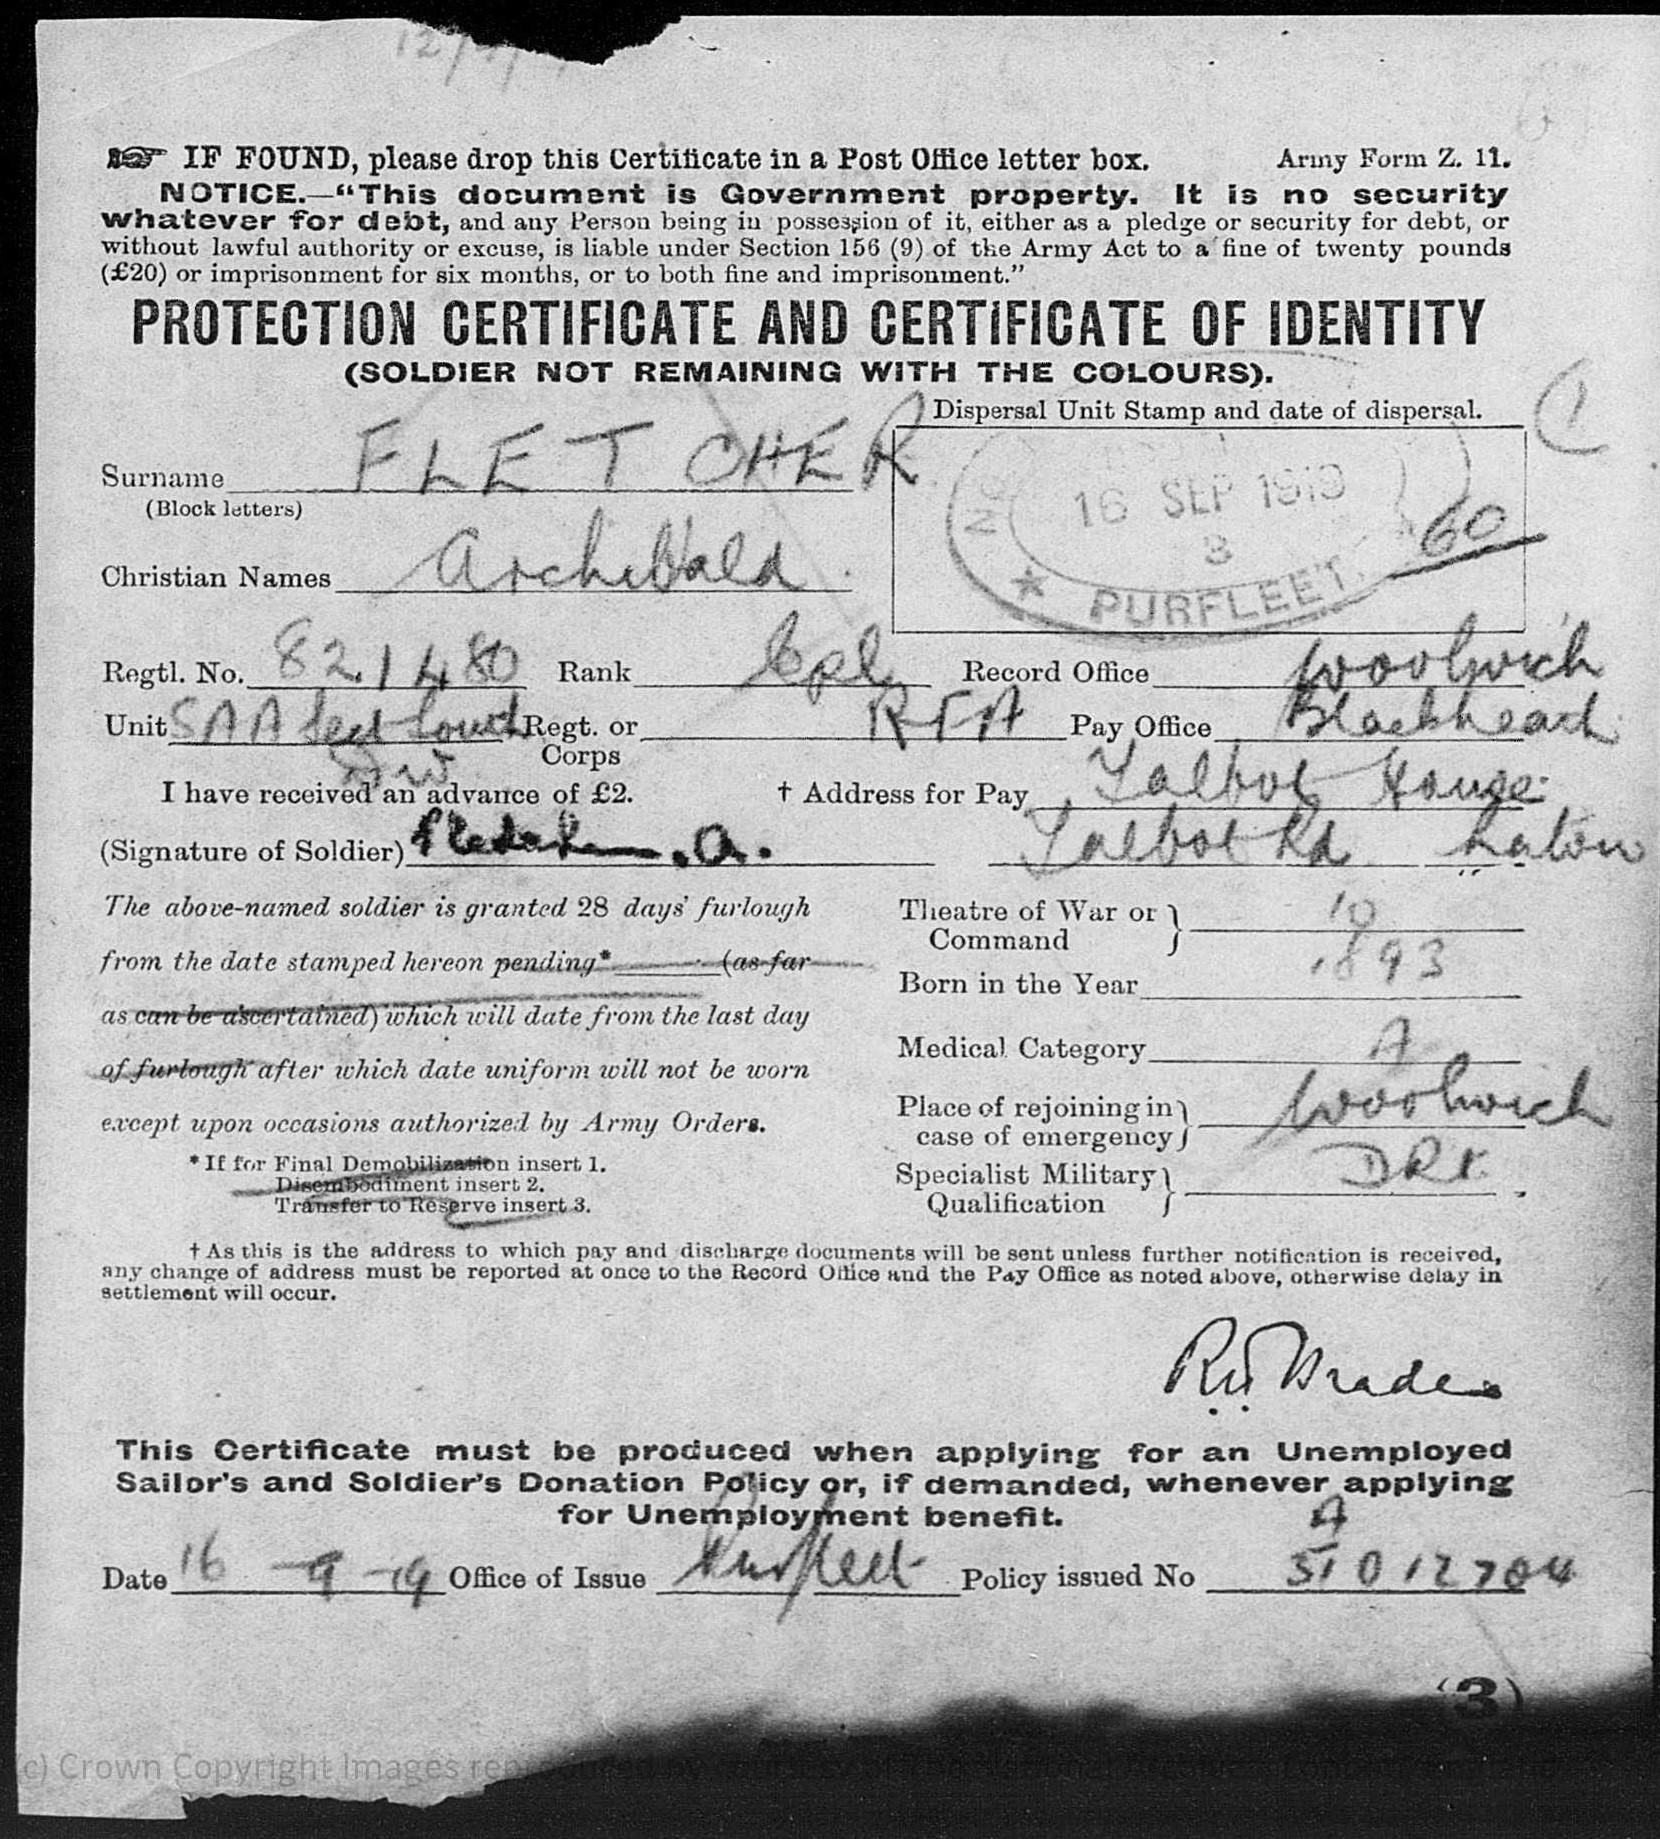 IF FOUND, please drop this Certificate in a Post Office letter box. Army Form Z. 11.
NOTICE.—“This document is Government property. It is no security
whatever for debt, and any Person being in possession of it, either as a pledge or security for debt, or
without lawful authority or excuse, is liable under Section 156 (9) of the Army Act to a fine of twenty pounds
(£20) or imprisonment for six months, or to both fine and imprisonment.”
PROTECTION CERTIFICATE AND CERTIFICATE OF IDENTITY
(SOLDIER NOT REMAINING WITH THE COLOURS).
Dispersal Unit Stamp and date of dispersal.
Surname FLETCHER
(Block letters)
16 SEP 1919
3
★ PURFLEET
60
Christian Names Archibald
Regtl. No. 821480 Rank Cpl Record Office Woolwich
Unit SAA Regt. or Corps RFA Pay Office Blackheath
I have received an advance of £2. † Address for Pay Talbot House
(Signature of Soldier) Fletcher. A. Talbot Rd
The above-named soldier is granted 28 days’ furlough
from the date stamped hereon pending* (as far
as can be ascertained) which will date from the last day
of furlough after which date uniform will not be worn
except upon occasions authorized by Army Orders.
*If for Final Demobilization insert 1.
Disembodiment insert 2.
Transfer to Reserve insert 3.
Theatre of War or Command 10
Born in the Year 1893
Medical Category A
Place of rejoining in case of emergency Woolwich
Specialist Military Qualification
† As this is the address to which pay and discharge documents will be sent unless further notification is received,
any change of address must be reported at once to the Record Office and the Pay Office as noted above, otherwise delay in
settlement will occur.
This Certificate must be produced when applying for an Unemployed
Sailor’s and Soldier’s Donation Policy or, if demanded, whenever applying
for Unemployment benefit.
A
Date 16-9-19 Office of Issue Purfleet Policy issued No 51012704
(3)
(c) Crown Copyright Images reproduced by courtesy of The National Archives, London, England.